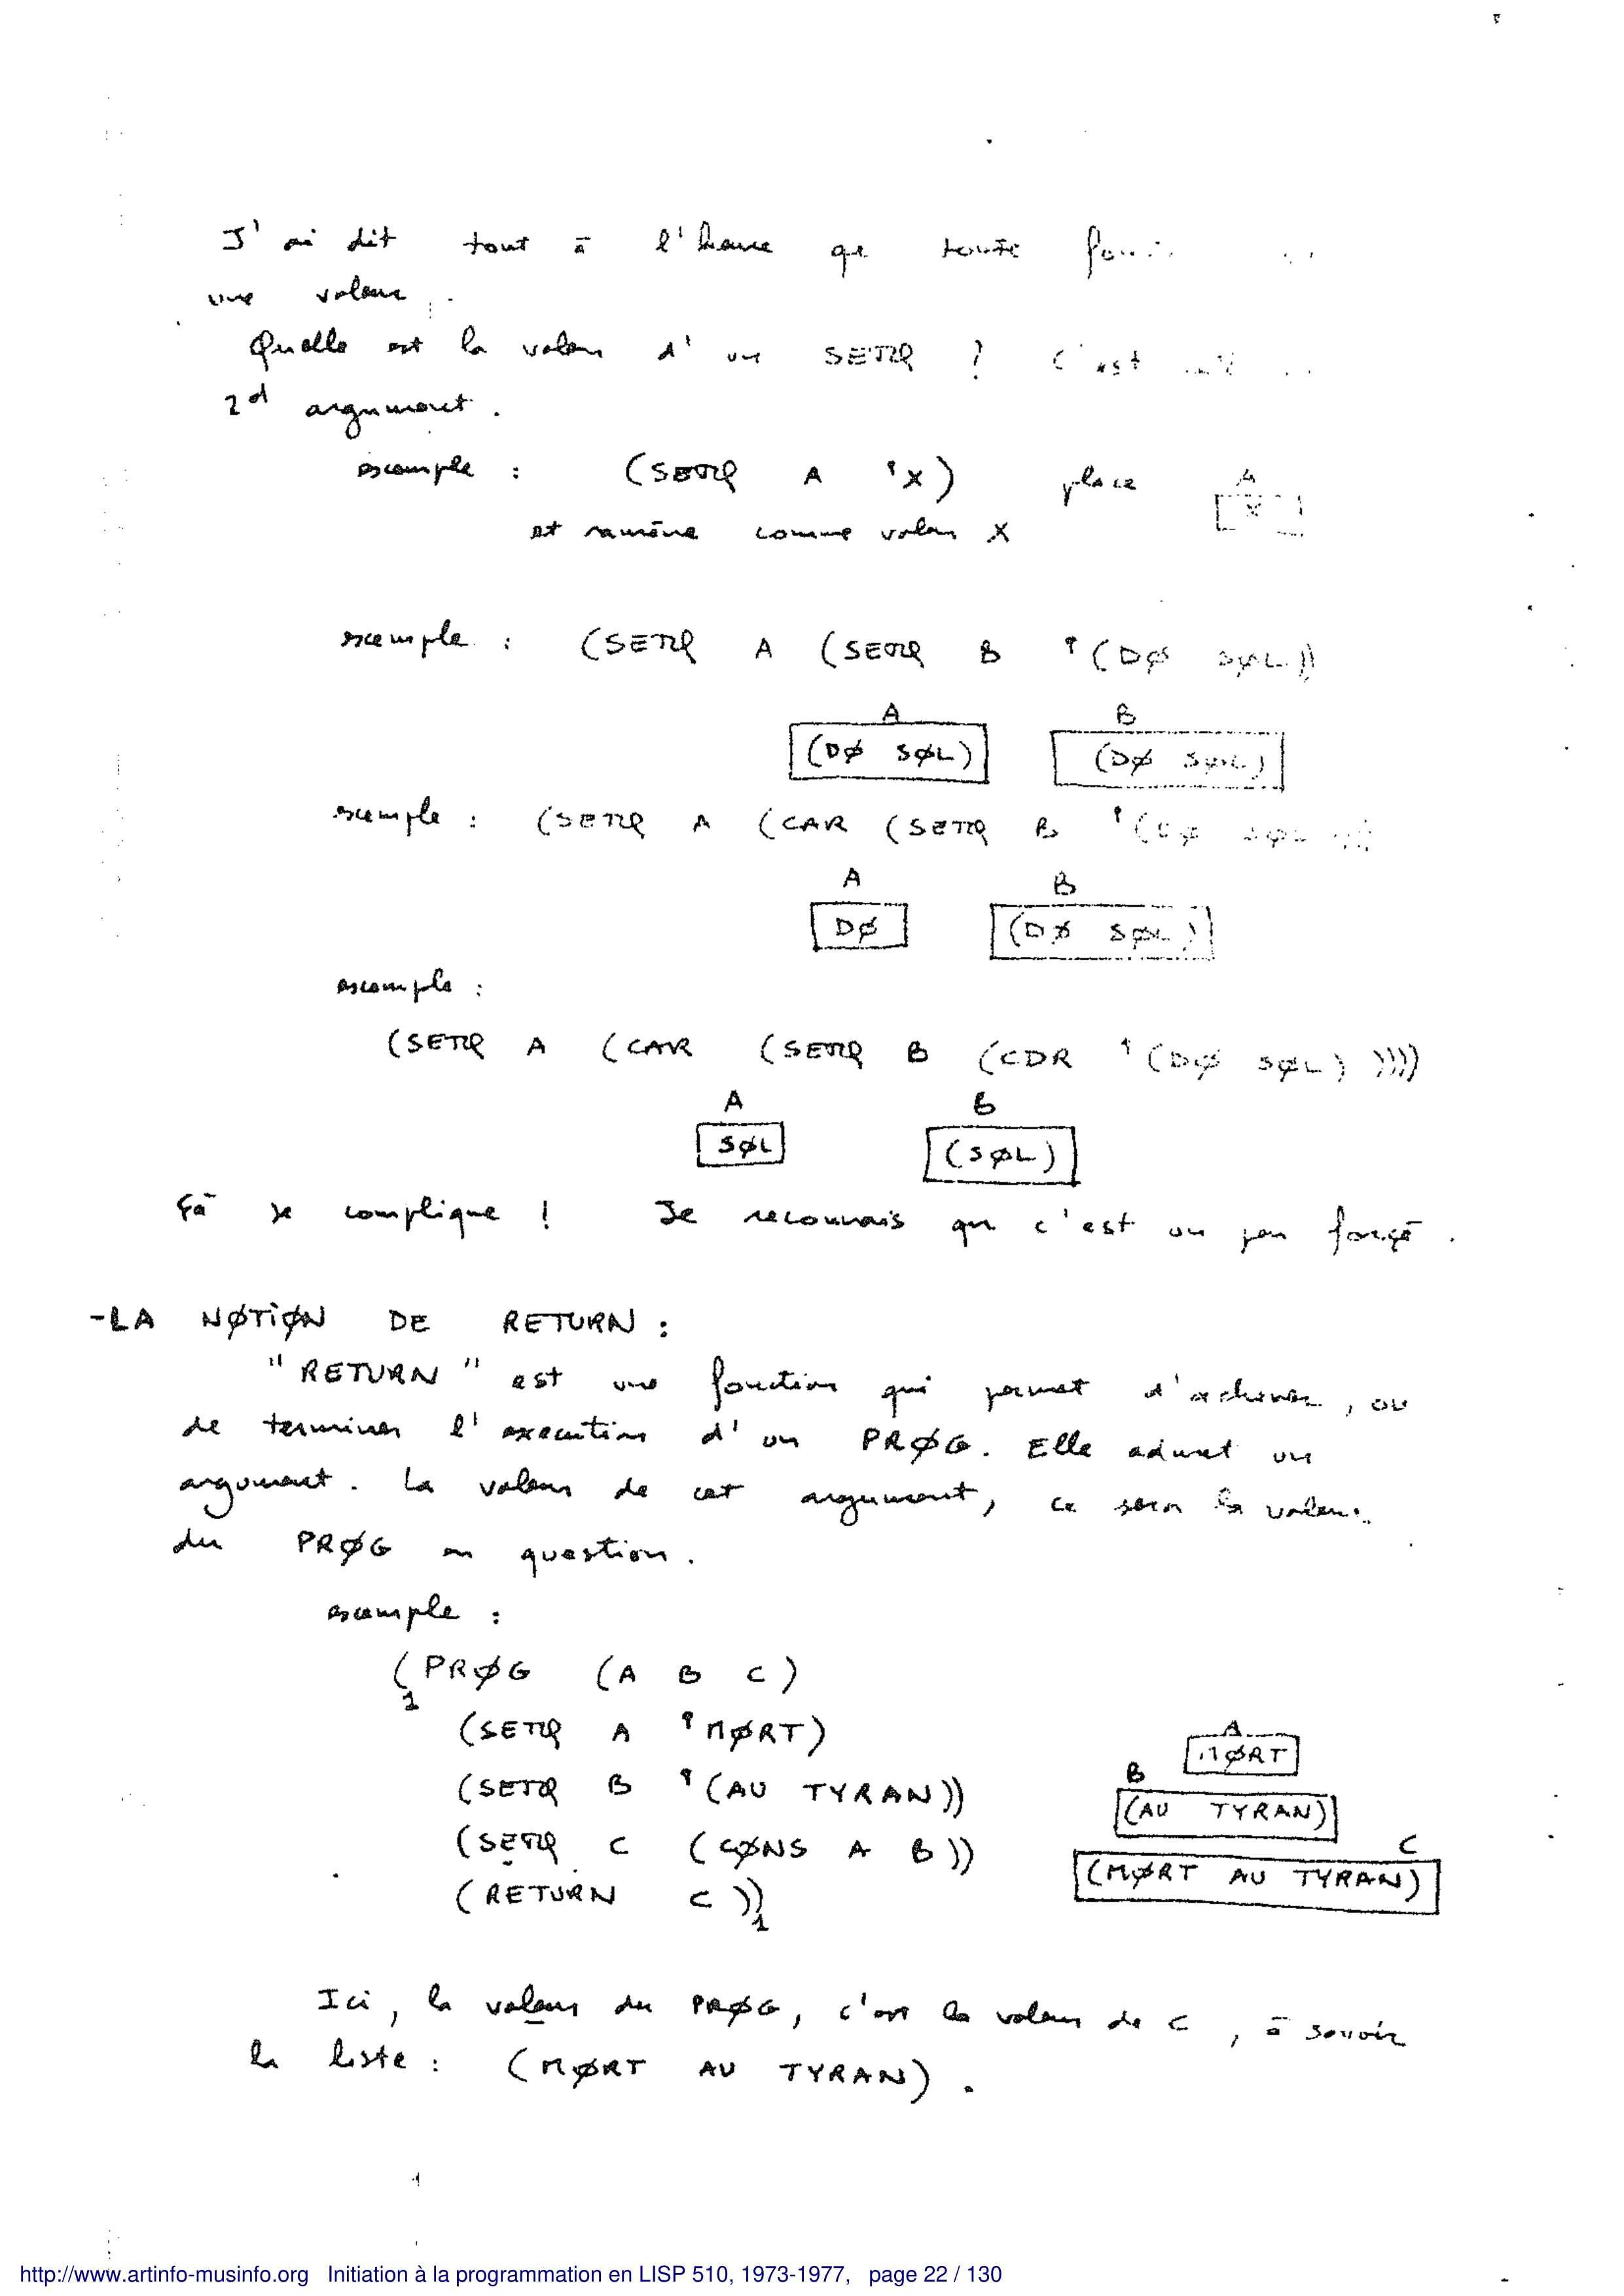 J'ai dit tout à l'heure que toute
une valeur.
Quelle est la valeur d'un SETQ ? C'est
2d argument.
exemple : (SETQ A 'X) place A
X
et ramène comme valeur X
exemple : (SETQ A (SETQ B '(DØ SØL))
A B
(DØ SØL) (DØ SØL)
exemple : (SETQ A (CAR (SETQ B '(DØ SØL)))
A B
DØ (DØ SØL)
exemple :
(SETQ A (CAR (SETQ B (CDR '(DØ SØL) ))))
A B
SØL (SØL)
Çà se complique ! Je reconnais que c'est un peu forçé.
-LA NØTIØN DE RETURN :
"RETURN" est une fonction qui permet d'achever, ou
de terminer l'execution d'un PRØG. Elle admet un
argument. La valeur de cet argument, ce sera la valeur
du PRØG en question.
exemple :
(PRØG (A B C)
1
(SETQ A 'MØRT) A
MØRT
(SETQ B '(AU TYRAN)) B
(AU TYRAN)
(SETQ C (CØNS A B)) C
(MØRT AU TYRAN)
(RETURN C ))
1
Ici, la valeur du PRØG, c'est la valeur de C, à savoir
la liste : (MØRT AU TYRAN).
http://www.artinfo-musinfo.org Initiation à la programmation en LISP 510, 1973-1977, page 22 / 130